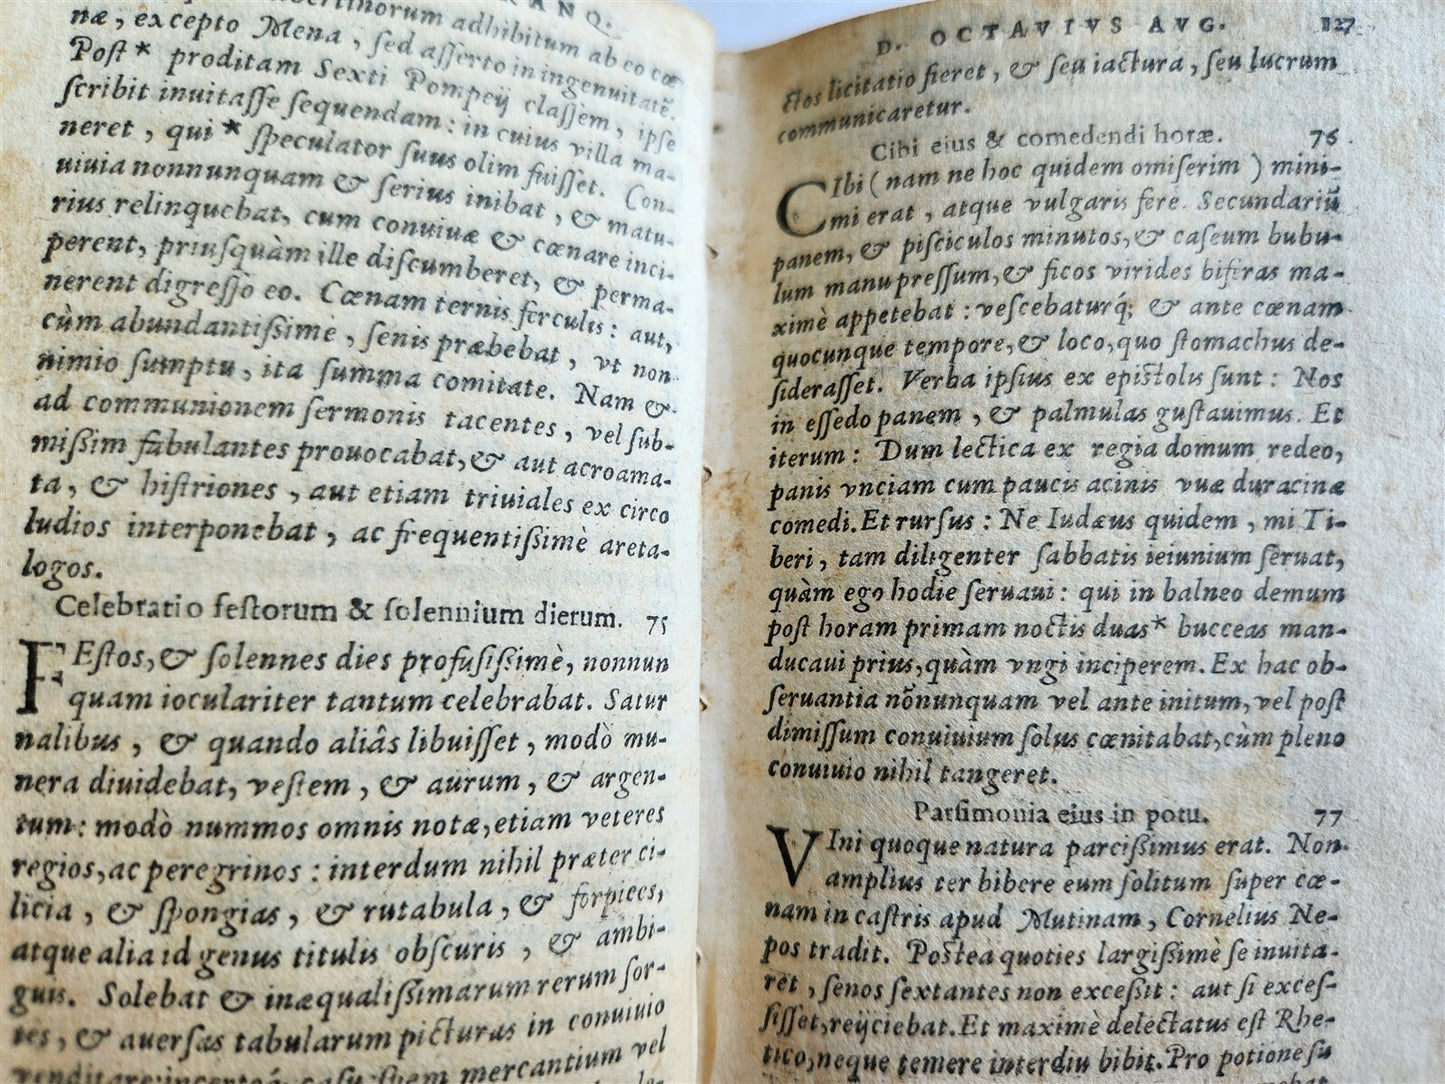 RANQ.
libertinorum adhibitum ab eo cœ
næ, excepto Mena, sed asserto in ingenuitatē.
Post * proditam Sexti Pompeÿ classem, ipse
scribit inuitasse sequendam: in cuius villa ma-
neret, qui * speculator suus olim fuisset. Con-
uiuia nonnunquam & serius inibat, & matu-
rius relinquebat, cum conuiuæ & cœnare inci-
perent, priusquàm ille discumberet, & perma-
nerent digresso eo. Cœnam ternis ferculis: aut,
cùm abundantissimè, senis præbebat, vt non
nimio sumptu, ita summa comitate. Nam &
ad communionem sermonis tacentes, vel sub-
missim fabulantes prouocabat, & aut acroama-
ta, & histriones, aut etiam triuiales ex circo
ludios interponebat, ac frequentissimè areta-
logos.
Celebratio festorum & solennium dierum. 75
FEstos, & solennes dies profusissimè, nonnun
quam ioculariter tantum celebrabat. Satur
nalibus, & quando aliâs libuisset, modò mu-
nera diuidebat, vestem, & aurum, & argen-
tum: modò nummos omnis notæ, etiam veteres
regios, ac peregrinos: interdum nihil præter ci-
licia, & spongias, & rutabula, & forpices,
atque alia id genus titulis obscuris, & ambi-
guis. Solebat & inæqualissimarum rerum sor-
tes, & auersas tabularum picturas in conuiuio
venditare incertoq́; casu spem mercantium vel
D. OCTAVIVS AVG. 127
ctos licitatio fieret, & seu iactura, seu lucrum
communicaretur.
Cibi eius & comedendi horæ. 76
CIbi (nam ne hoc quidem omiserim) mini-
mi erat, atque vulgaris fere. Secundariū
panem, & pisciculos minutos, & caseum bubu-
lum manu pressum, & ficos virides biferas ma-
ximè appetebat: vescebaturq́; & ante cœnam
quocunque tempore, & loco, quo stomachus de-
siderasset. Verba ipsius ex epistolis sunt: Nos
in essedo panem, & palmulas gustauimus. Et
iterum: Dum lectica ex regia domum redeo,
panis vnciam cum paucis acinis vuæ duracinæ
comedi. Et rursus: Ne Iudæus quidem, mi Ti-
beri, tam diligenter sabbatis ieiunium seruat,
quàm ego hodie seruaui: qui in balneo demum
post horam primam noctis duas* bucceas man-
ducaui prius, quàm vngi inciperem. Ex hac ob-
seruantia nōnunquam vel ante initum, vel post
dimissum conuiuium solus cœnitabat, cùm pleno
conuiuio nihil tangeret.
Parsimonia eius in potu. 77
VIni quoque natura parcissimus erat. Non
amplius ter bibere eum solitum super cœ-
nam in castris apud Mutinam, Cornelius Ne-
pos tradit. Postea quoties largissimè se inuita-
ret, senos sextantes non excessit: aut si exces-
sisset, reÿciebat. Et maximè delectatus est Rhe-
tico, neque temere interdiu bibit. Pro potione su